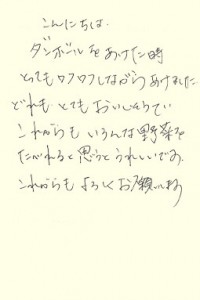 こんにちは.
ダンボールをあけた時
とってもワクワクしながらあけました.
どれもとてもおいしそうで
これからもいろんな野菜を
たべれると思うとうれしいです.
これからもよろしくお願いします